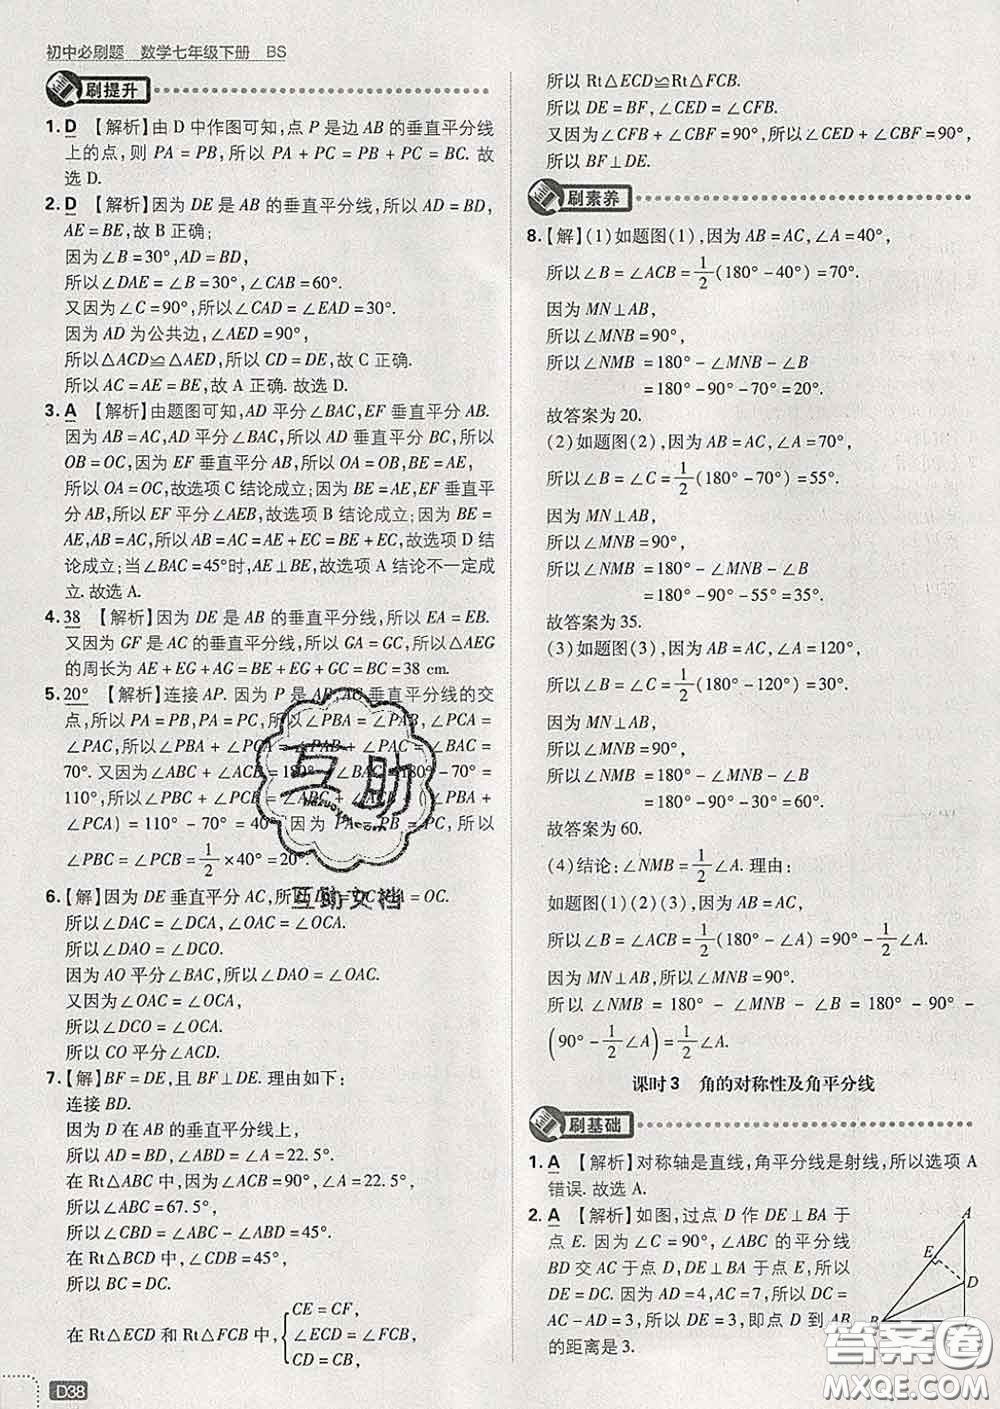 初中必刷题 数学七年级下册 BS
刷提升
1. D 【解析】由 D 中作图可知,点 P 是边 AB 的垂直平分线
上的点,则 PA = PB,所以 PA + PC = PB + PC = BC. 故
选 D.
2. D 【解析】因为 DE 是 AB 的垂直平分线,所以 AD = BD,
AE = BE,故 B 正确;
因为∠B = 30°,AD = BD,
所以∠DAE = ∠B = 30°,∠CAB = 60°.
又因为∠C = 90°,所以∠CAD = ∠EAD = 30°.
因为 AD 为公共边,∠AED = 90°,
所以△ACD≌△AED,所以 CD = DE,故 C 正确.
所以 AC = AE = BE,故 A 正确. 故选 D.
3. A 【解析】由题图可知,AD 平分∠BAC,EF 垂直平分 AB.
因为 AB = AC,AD 平分∠BAC,所以 AD 垂直平分 BC,所以
OB = OC,因为 EF 垂直平分 AB,所以 OA = OB,BE = AE,
所以 OA = OC,故选项 C 结论成立;因为 BE = AE,EF 垂直平
分 AB,所以 EF 平分∠AEB,故选项 B 结论成立;因为 BE =
AE,AB = AC,所以 AB = AC = AE + EC = BE + EC,故选项 D 结
论成立;当∠BAC = 45°时,AE⊥BE,故选项 A 结论不一定成
立. 故选 A.
4. 38 【解析】因为 DE 是 AB 的垂直平分线,所以 EA = EB.
又因为 GF 是 AC 的垂直平分线,所以 GA = GC,所以△AEG
的周长为 AE + EG + AG = BE + EG + GC = BC = 38 cm.
5. 20° 【解析】连接 AP. 因为 P 是 AB,AC 垂直平分线的交
点,所以 PA = PB,PA = PC,所以∠PBA = ∠PAB,∠PCA =
∠PAC,所以∠PBA + ∠PCA = ∠PAB + ∠PAC = ∠BAC =
70°. 又因为∠ABC + ∠ACB = 180° - ∠BAC = 180° - 70° =
110°,所以∠PBC + ∠PCB = ∠ABC + ∠ACB - (∠PBA +
∠PCA) = 110° - 70° = 40°. 因为 PA = PB = PC,所以
∠PBC = ∠PCB = 1/2 ×40° = 20°.
6. 【解】因为 DE 垂直平分 AC,所以 DA = DC,OA = OC.
所以∠DAC = ∠DCA,∠OAC = ∠OCA.
所以∠DAO = ∠DCO.
因为 AO 平分∠BAC,所以∠DAO = ∠OAC.
又因为∠OAC = ∠OCA,
所以∠DCO = ∠OCA.
所以 CO 平分∠ACD.
7. 【解】BF = DE,且 BF⊥DE. 理由如下:
连接 BD.
因为 D 在 AB 的垂直平分线上,
所以 AD = BD,∠ABD = ∠A = 22.5°.
在 Rt△ABC 中,因为∠ACB = 90°,∠A = 22.5°,
所以∠ABC = 67.5°.
所以∠CBD = ∠ABC - ∠ABD = 45°.
在 Rt△BCD 中,∠CDB = 45°,
所以 BC = DC.
在 Rt△ECD 和 Rt△FCB 中,{CE = CF,
∠ECD = ∠FCB,
CD = CB,
D38
所以 Rt△ECD≌Rt△FCB.
所以 DE = BF,∠CED = ∠CFB.
又因为∠CFB + ∠CBF = 90°,所以∠CED + ∠CBF = 90°,
所以 BF⊥DE.
刷素养
8. 【解】(1)如题图(1),因为 AB = AC,∠A = 40°,
所以∠B = ∠ACB = 1/2(180° - 40°) = 70°.
因为 MN⊥AB,
所以∠MNB = 90°,
所以∠NMB = 180° - ∠MNB - ∠B
= 180° - 90° - 70° = 20°.
故答案为 20.
(2)如题图(2),因为 AB = AC,∠A = 70°,
所以∠B = ∠C = 1/2(180° - 70°) = 55°.
因为 MN⊥AB,
所以∠MNB = 90°,
所以∠NMB = 180° - ∠MNB - ∠B
= 180° - 90° - 55° = 35°.
故答案为 35.
(3)如题图(3),因为 AB = AC,∠A = 120°,
所以∠B = ∠C = 1/2(180° - 120°) = 30°.
因为 MN⊥AB,
所以∠MNB = 90°.
所以∠NMB = 180° - ∠MNB - ∠B
= 180° - 90° - 30° = 60°.
故答案为 60.
(4)结论:∠NMB = 1/2∠A. 理由:
如题图(1)(2)(3),因为 AB = AC,
所以∠B = ∠ACB = 1/2(180° - ∠A) = 90° - 1/2∠A.
因为 MN⊥AB,所以∠MNB = 90°.
所以∠NMB = 180° - ∠MNB - ∠B = 180° - 90° -
(90° - 1/2∠A) = 1/2∠A.
课时 3 角的对称性及角平分线
刷基础
1. A 【解析】对称轴是直线,角平分线是射线,所以选项 A
错误. 故选 A.
2. A 【解析】如图,过点 D 作 DE⊥BA 于
点 E. 因为∠C = 90°,∠ABC 的平分线
BD 交 AC 于点 D,所以 DE = DC.
因为 AD = 4,AC = 7,所以 DC =
AC - AD = 3,所以 DE = 3,即点 D 到 AB
的距离是 3.
A
E
D
B
互助
互助文档
答案圈
MXQE.COM